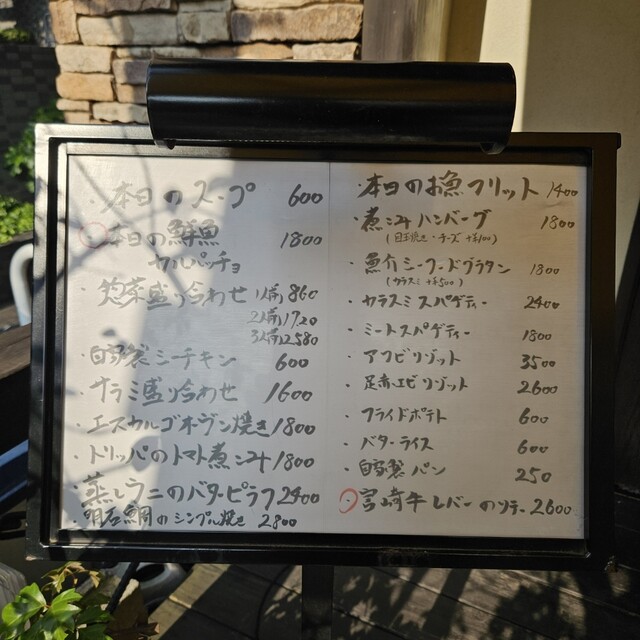 ・本日のスープ 600
本日の鮮魚 1800
カルパッチョ
・惣菜盛り合わせ 1人前860
2人前1720
3人前2580
・自家製シーチキン 600
・サラミ盛り合わせ 1600
・エスカルゴオーブン焼き 1800
・トリッパのトマト煮込み 1800
・蒸しウニのバターピラフ 2400
・明石鯛のシンプル焼き 2800
・本日のお魚フリット 1400
・煮込みハンバーグ 1800
(目玉焼き・チーズ +各100)
・魚介シーフードグラタン 1800
(カラスミ +¥500)
・カラスミスパゲティー 2400
・ミートスパゲティー 1800
・アワビリゾット 3500
・足赤エビリゾット 2600
・フライドポテト 600
・バターライス 600
・自家製パン 250
宮崎牛レバーのソテー 2600